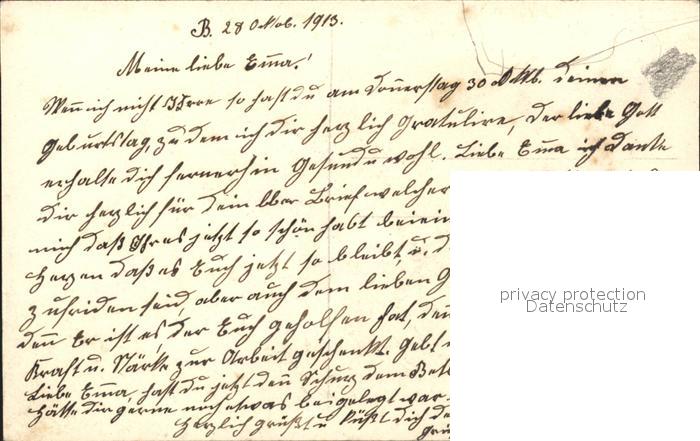 B. 28 Oktob. 1913.
Meine liebe Emma!
Wen̄ ich nicht Irre so hast du am Don̄erstag 30 Oktb. deinen
Geburtstag, zu dem ich dir herzlich Gratulire, der liebe Gott
erhalte dich fernerhin Gesund u wohl. Liebe Em̄a ich danke
dir herzlich für dein lber Brief welcher
mich daß Ihr es jetzt so schön habt beiein
Herzen daß es Euch jetzt so bleibt, u. d
zufriden seid, aber auch dem lieben G
den̄ Er ist es, der Euch geholfen hat, den̄
Kraft u. Stärke zur Arbeit geschenkt. Gebt
Liebe Em̄a, hast du jetzt den Schurz dem Bet
Hätte dir gerne noch etwas beigelegt war
Herzlich grüßt u Küßt dich de
grü
privacy protection
Datenschutz